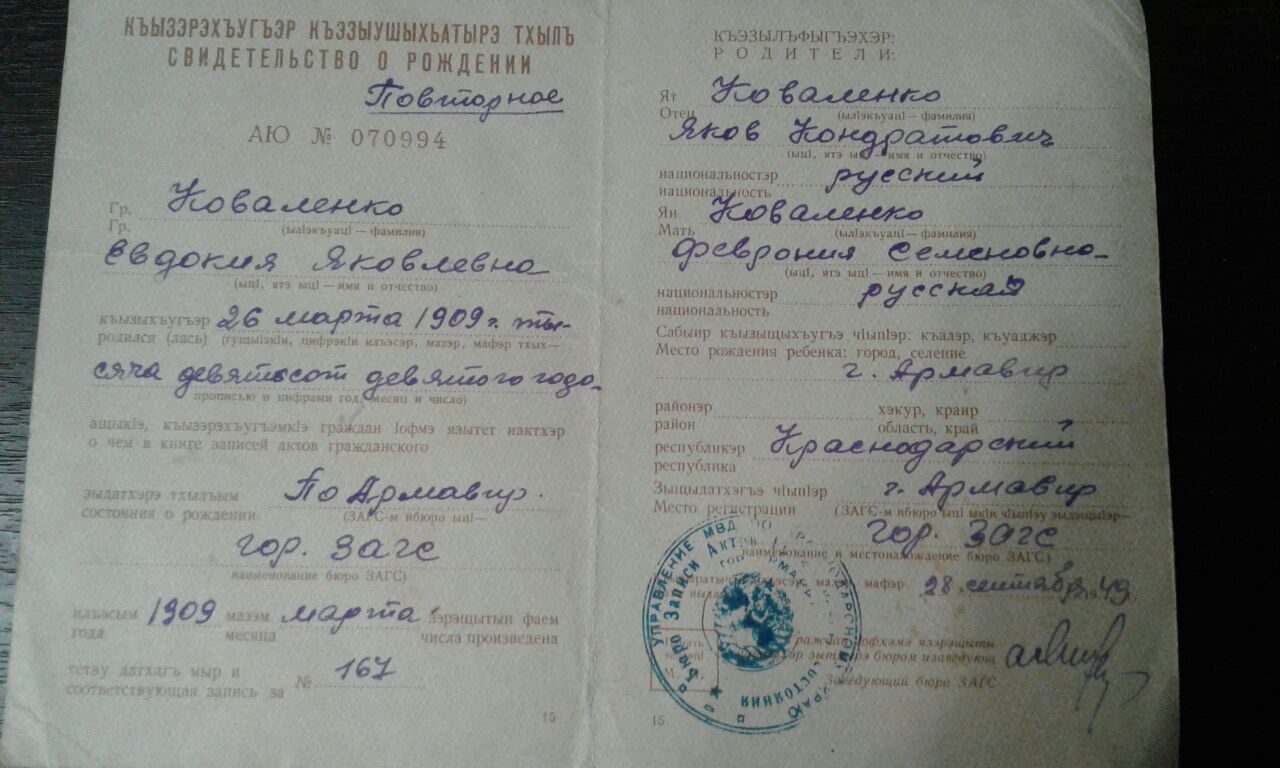 КЪЫЗЭРЭХЪУГЪЭР КЪЭЗЫУШЫХЬАТЫРЭ ТХЫЛЪ
СВИДЕТЕЛЬСТВО О РОЖДЕНИИ
Повторное
АЮ № 070994
Гр. Коваленко
Гр. (ылӀэкъуацӀ — фамилия)
Евдокия Яковлевна
(ыцӀ, ятэ ыцӀ — имя и отчество)
къызыхъугъэр 26 марта 1909 г. ты-
родился (лась) (гущыӀэкӀи, цифрэкӀи илъэсэр, мазэр, мафэр тхых—
сяча девятьсот девятого года
прописью и цифрами год, месяц и число)
ащыкӀэ, къызэрэхъугъэмкӀэ граждан Ӏофмэ язытет иактхэр
о чем в книге записей актов гражданского
зыдатхэрэ тхылъым По Армавир.
состояния о рождении (ЗАГС-м ибюро ыцӀ—
гор. ЗАГС
наименование бюро ЗАГС)
илъэсым 1909 мазэм марта зэрэщытын фаем
года месяца числа произведена
тетэу датхагъ мыр и
соответствующая запись за № 167
15
КЪЭЗЫЛЪФЫГЪЭХЭР:
РОДИТЕЛИ:
Ят Коваленко
Отец (ылӀэкъуацӀ — фамилия)
Яков Кондратович
(ыцӀ, ятэ ыцӀ — имя и отчество)
национальностэр русский
национальность
Ян Коваленко
Мать (ылӀэкъуацӀ — фамилия)
Феврония Семеновна
(ыцӀ, ятэ ыцӀ — имя и отчество)
национальностэр русская
национальность
Сабыир къызыщыхъугъэ чӀыпӀэр: къалэр, къуаджэр
Место рождения ребенка: город, селение
г. Армавир
районэр хэкур, краир
район область, край
республикэр Краснодарский
республика
Зыщылатхэгъэ чӀыпӀэр г. Армавир
Место регистрации (ЗАГС-м ибюро ыцӀ ыкӀи чӀыпӀэу зыдэщыӀэр—
гор. ЗАГС
наименование и местонахождение бюро ЗАГС)
мафэр 28 сентября 1949.
УПРАВЛЕНИЕ МВД ПО КРАСНОДАРСКОМУ КРАЮ
Бюро Записи Актов
состояния
М.
бюром изаведующ
Заведующий бюро ЗАГС
15